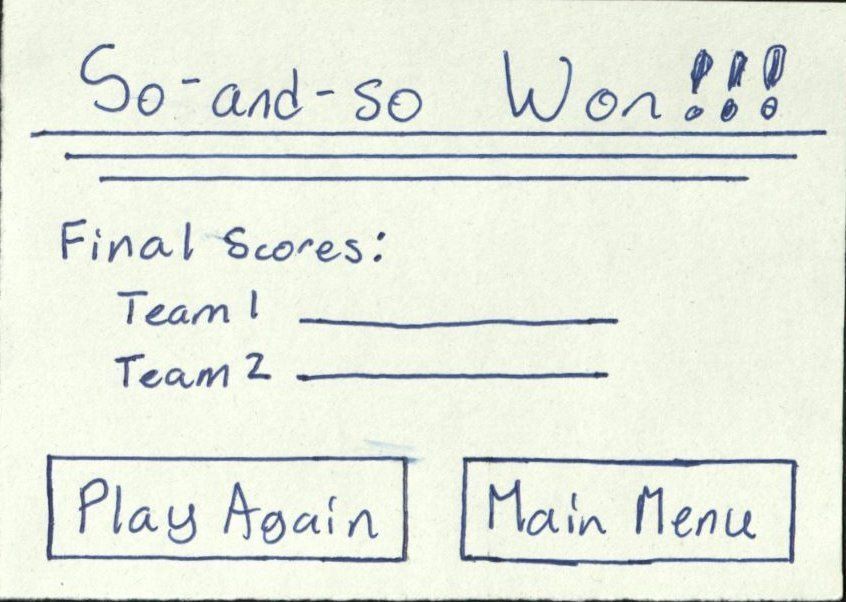 So-and-so Won!!!
Final Scores:
Team 1
Team 2
Play Again
Main Menu